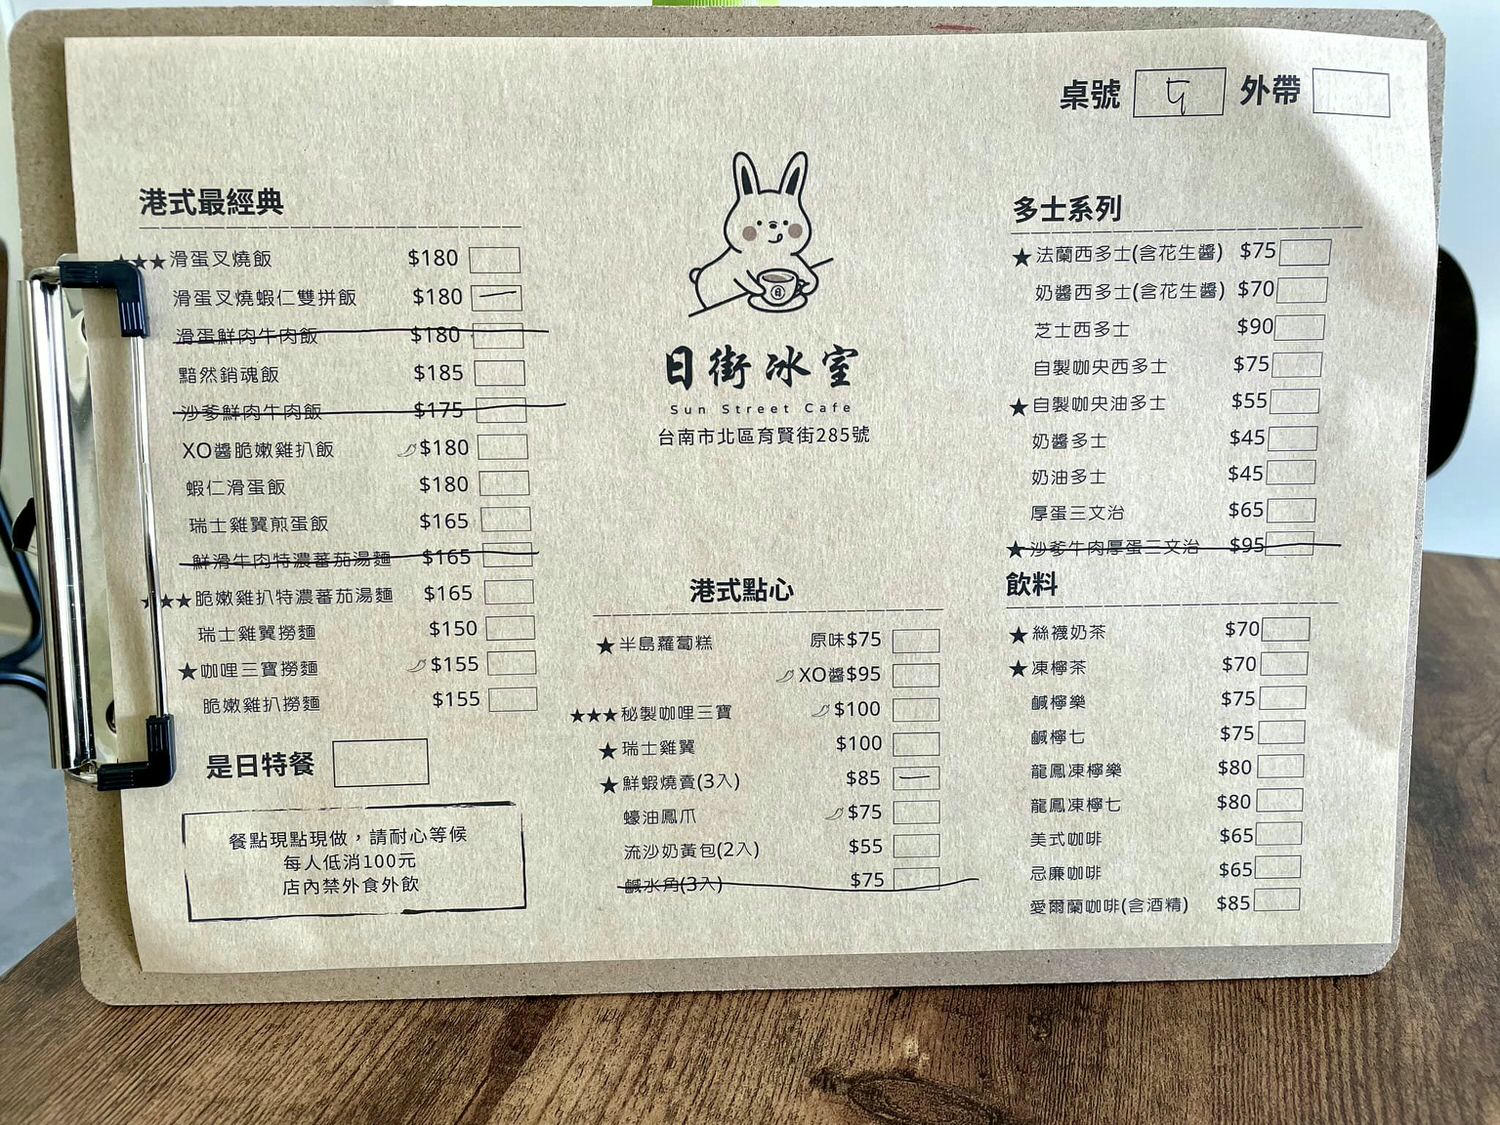 桌號 5 外帶
港式最經典
★★★滑蛋叉燒飯 $180
滑蛋叉燒蝦仁雙拼飯 $180
滑蛋鮮肉牛肉飯 $180
黯然銷魂飯 $185
沙爹鮮肉牛肉飯 $175
XO醬脆嫩雞扒飯 $180
蝦仁滑蛋飯 $180
瑞士雞翼煎蛋飯 $165
鮮滑牛肉特濃蕃茄湯麵 $165
★★★脆嫩雞扒特濃蕃茄湯麵 $165
瑞士雞翼撈麵 $150
★咖哩三寶撈麵 $155
脆嫩雞扒撈麵 $155
是日特餐
餐點現點現做，請耐心等候
每人低消100元
店內禁外食外飲
日街冰室
Sun Street Cafe
台南市北區育賢街285號
港式點心
★半島蘿蔔糕 原味$75
XO醬$95
★★★秘製咖哩三寶 $100
★瑞士雞翼 $100
★鮮蝦燒賣(3入) $85
蠔油鳳爪 $75
流沙奶黃包(2入) $55
鹹水角(3入) $75
多士系列
★法蘭西多士(含花生醬) $75
奶醬西多士(含花生醬) $70
芝士西多士 $90
自製咖央西多士 $75
★自製咖央油多士 $55
奶醬多士 $45
奶油多士 $45
厚蛋三文治 $65
★沙爹牛肉厚蛋三文治 $95
飲料
★絲襪奶茶 $70
★凍檸茶 $70
鹹檸樂 $75
鹹檸七 $75
龍鳳凍檸樂 $80
龍鳳凍檸七 $80
美式咖啡 $65
忌廉咖啡 $65
愛爾蘭咖啡(含酒精) $85